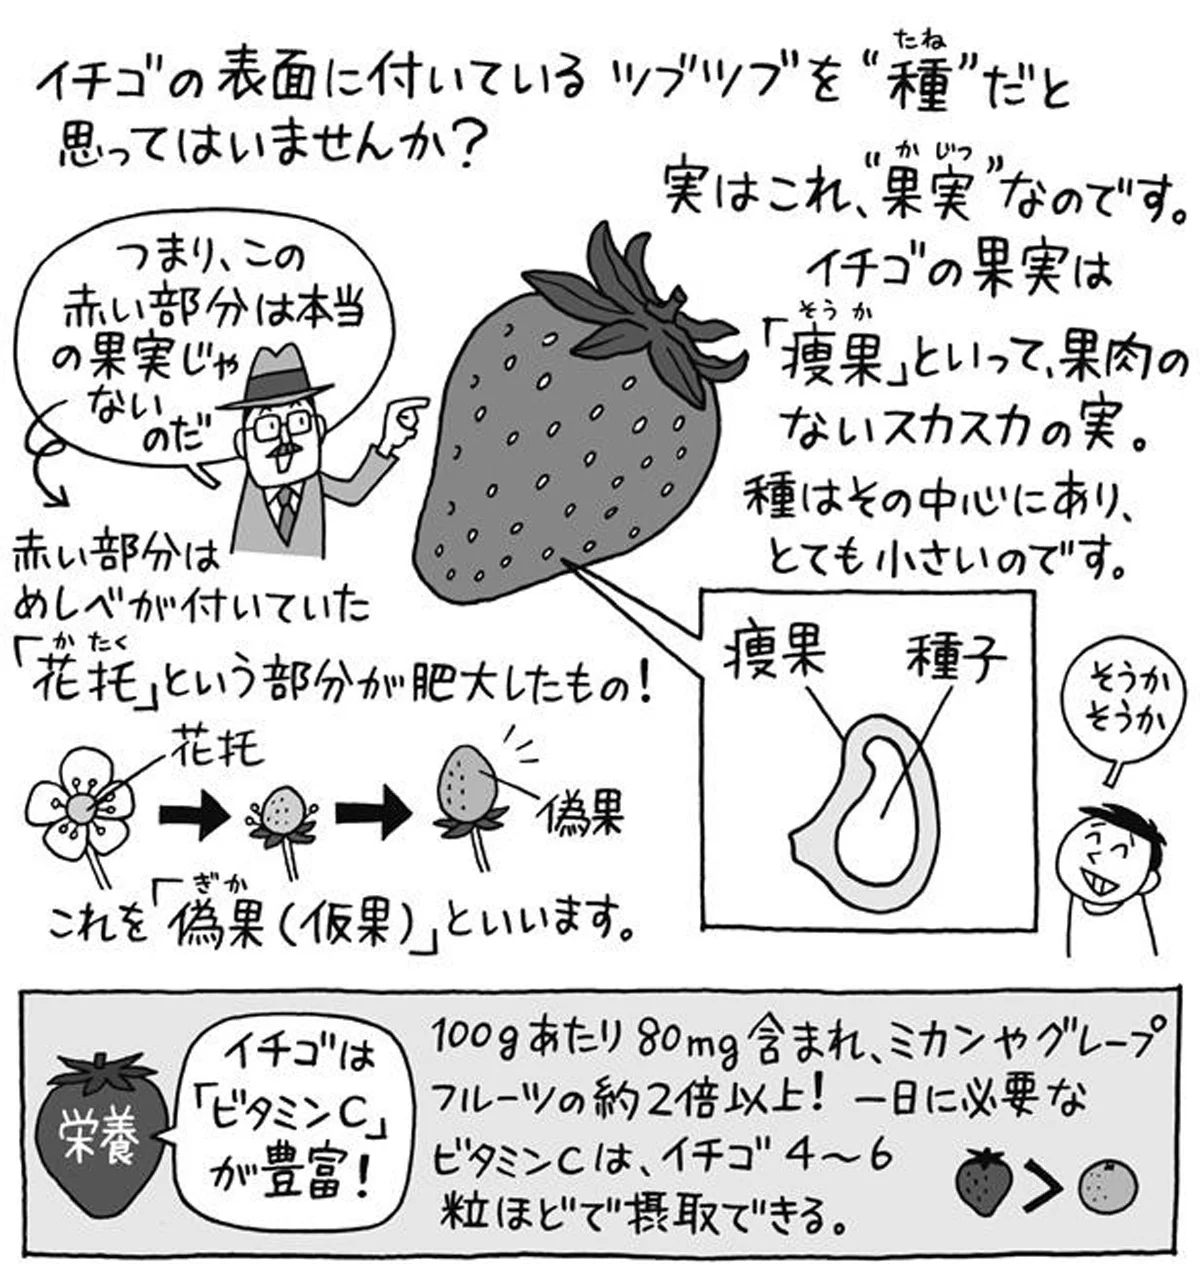 イチゴの表面に付いているツブツブを“種”だと
たね
思ってはいませんか？
実はこれ、“果実”なのです。
かじつ
イチゴの果実は
「痩果」といって、果肉の
そうか
ないスカスカの実。
種はその中心にあり、
とても小さいのです。
つまり、この
赤い部分は本当
の果実じゃ
ない
のだ
赤い部分は
めしべが付いていた
「花托」という部分が肥大したもの！
かたく
花托
偽果
これを「偽果（仮果）」といいます。
ぎか
痩果
種子
そうか
そうか
栄養
イチゴは
「ビタミンC」
が豊富！
100gあたり80mg含まれ、ミカンやグレープ
フルーツの約2倍以上！一日に必要な
ビタミンCは、イチゴ4〜6
粒ほどで摂取できる。
>